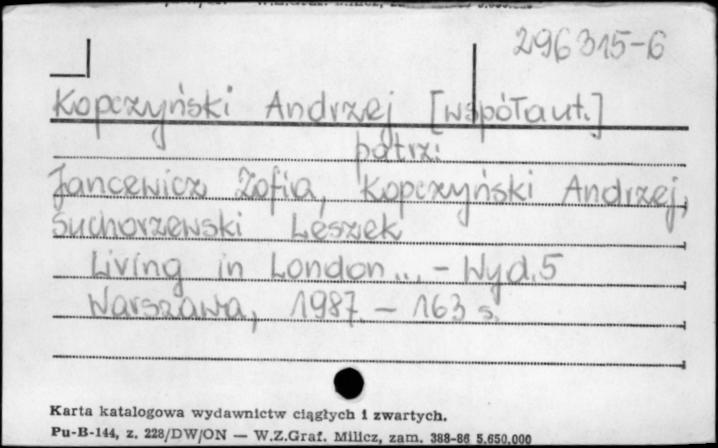 296315-6
Kopczyński Andrzej [współaut.]
patrz:
Jancewicz Zofia, Kopczyński Andrzej,
Suchorzewski Leszek
Living in London... - Wyd. 5
Warszawa, 1987. - 163 s.
Karta katalogowa wydawnictw ciągłych i zwartych.
Pu-B-144, z. 228/DW/ON — W.Z.Graf. Milicz, zam. 388-86 5.650.000